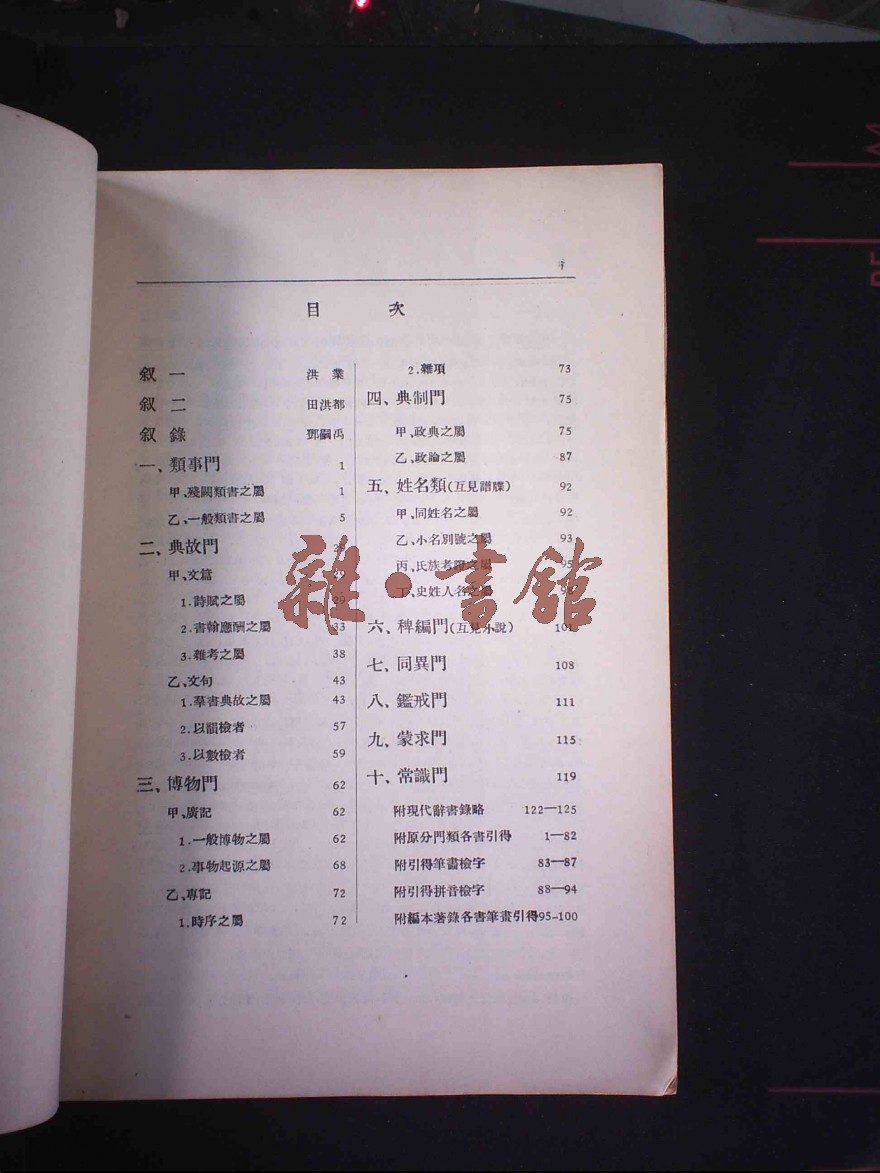 目 次
叙 一 洪 業
叙 二 田洪都
叙 錄 鄧嗣禹
一、類事門 1
甲、殘闕類書之屬 1
乙、一般類書之屬 5
二、典故門
甲、文篇
1.詩賦之屬 29
2.書翰應酬之屬 33
3.雜考之屬 38
乙、文句 43
1.羣書典故之屬 43
2.以韻檢者 57
3.以數檢者 59
三、博物門 62
甲、廣記 62
1.一般博物之屬 62
2.事物起源之屬 68
乙、專記 72
1.時序之屬 72
2.雜項 73
四、典制門 75
甲、政典之屬 75
乙、政論之屬 87
五、姓名類(互見譜牒) 92
甲、同姓名之屬 92
乙、小名別號之屬 93
丙、氏族考證之屬 95
丁、史姓人名之屬 98
六、稗編門(互見小說) 101
七、同異門 108
八、鑑戒門 111
九、蒙求門 115
十、常識門 119
附現代辭書錄略 122—125
附原分門類各書引得 1—82
附引得筆畫檢字 83—87
附引得拼音檢字 88—94
附編本著錄各書筆畫引得95-100
雜·書館